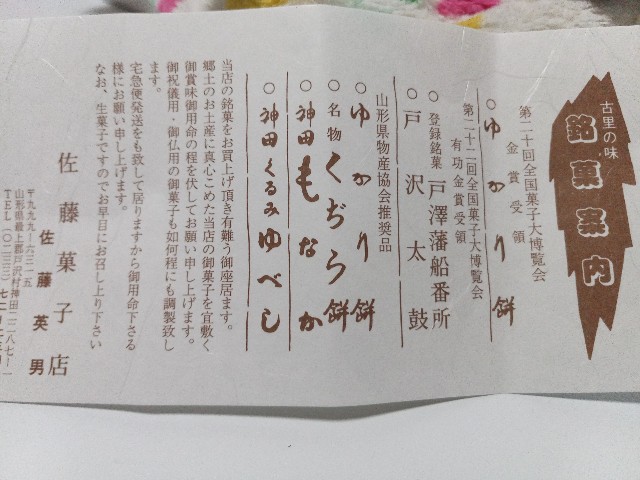 古里の味
銘菓案内
第二十回全国菓子大博覧会
金賞受領
○ゆかり餅
第二十二回全国菓子大博覧会
有功金賞受領
○登録銘菓 戸澤藩船番所
○戸沢太鼓
山形県物産協会推奨品
○ゆかり餅
○名物くぢら餅
○神田もなか
○神田くるみゆべし
当店の銘菓をお買上げ頂き有難う御座居ます。
郷土のお土産に真心こめた当店の御菓子を宜敷く
御賞味御用命の程を伏してお願い申し上げます。
御祝儀用・御仏用の御菓子も如何程にも調製致し
ます。
宅急便発送をも致して居りますから御用命下さる
様にお願い申し上げます。
なお、生菓子ですのでお早目にお召し上り下さい
佐藤菓子店
佐藤英男
〒九九九-六三一五
山形県最上郡戸沢村神田二二八七-一
TEL(〇二三三)七二-